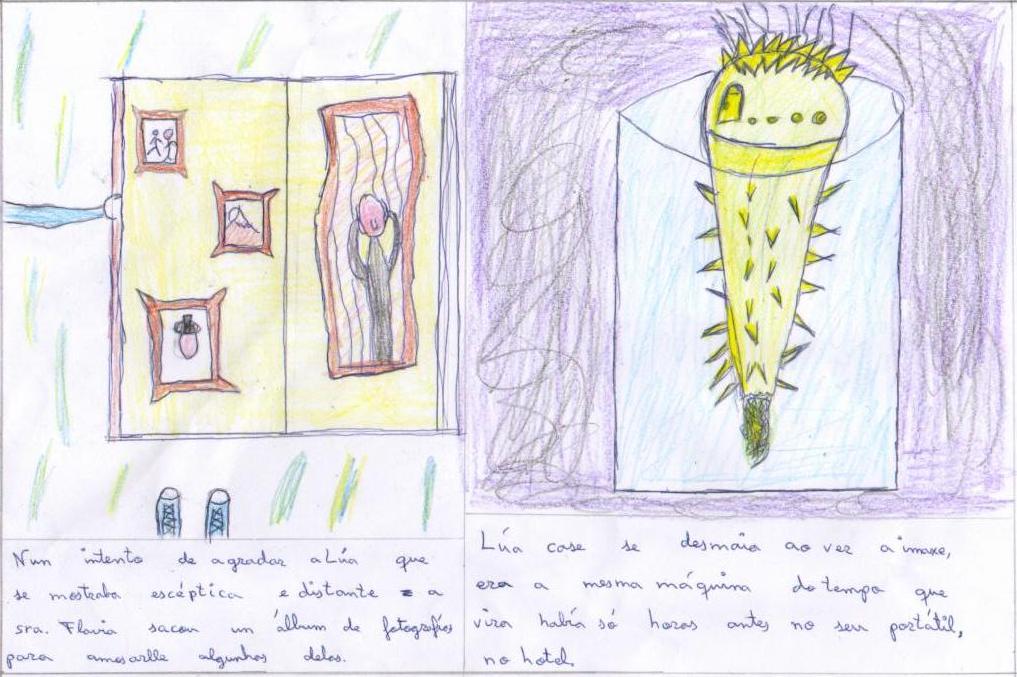 Nun intento de agradar a Lúa que
se mostraba escéptica e distante a
sra. Flavia sacou un álbum de fotografías
para amosarlle algunhas delas.
Lúa case se desmaia ao ver a imaxe,
era a mesma máquina do tempo que
vira había só horas antes no seu portátil,
no hotel.